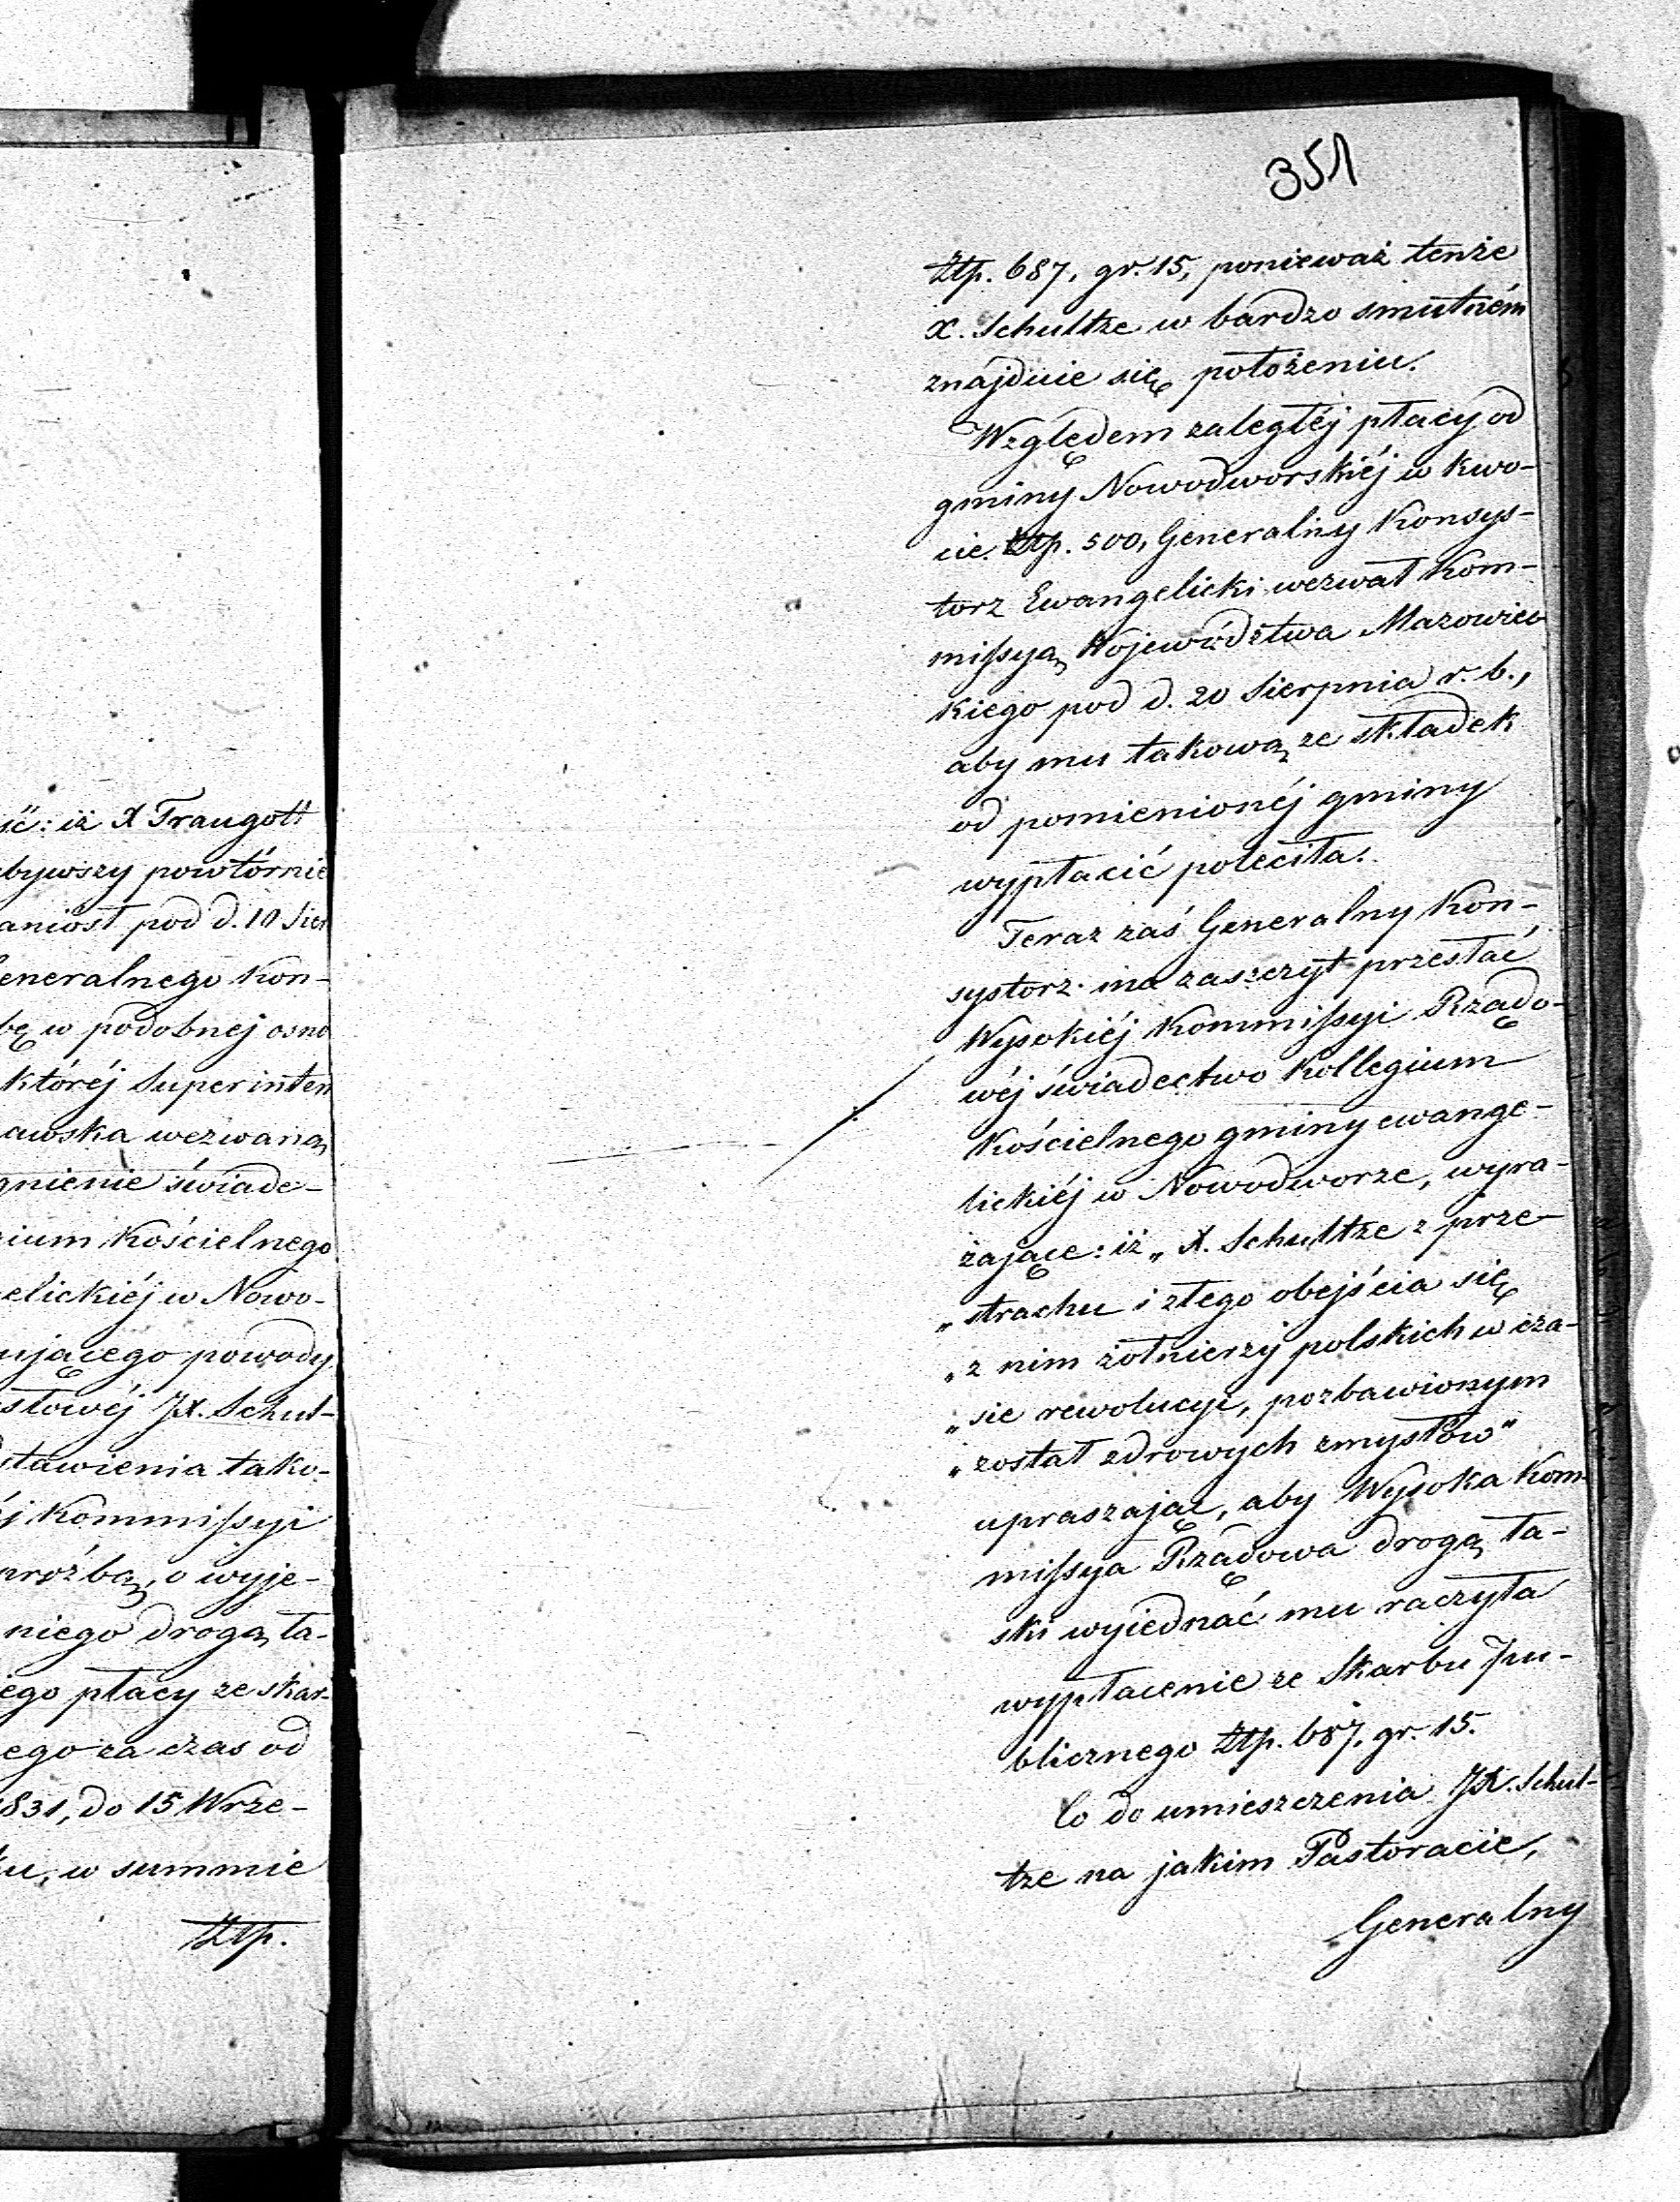 ść: iż X Traugott
bywszy powtórnie
aniósł pod d. 10 Sier
eneralnego Kon-
bę w podobnej osno
której Superinten
awska wezwaną
gnienie świade-
ium Kościelnego
elickiéj w Nowo-
ującego powody
słowéj JX. Schul-
stawienia tako-
j Kommissyi
proźbą, o wyje-
niego drogą ła-
ego płacy ze skar-
ego za czas od
831, do 15 Wrze-
ku, w summie
Złp.
351
Złp. 687, gr. 15, ponieważ tenże
X. Schultze w bardzo smutném
znájduie się położeniu.
Względem zaległéj płacy od
gminy Nowodworskiéj w kwo-
cie Złp. 500, Generalny Konsys-
torz Ewangelicki wezwał Kom-
missyą Województwa Mazowiec-
kiego pod d. 20 Sierpnia r. b.,
aby mu takową ze składek
od pomienionéj gminy
wypłacić poleciła.
Teraz zaś Generalny Kon-
systorz ma zaszczyt przesłać
Wysokiéj Kommissyi Rządo-
wéj świadectwo Kollegium
Kościelnego gminy ewange-
lickiéj w Nowodworze, wyra-
żające: iż „X. Schultze z prze-
„strachu i złego obejścia się
„z nim żołnierzy polskich w cza-
„sie rewolucyi, pozbawionym
„został zdrowych zmysłów"
upraszając, aby Wysoka Kom-
missya Rządowa drogą ła-
ski wyiednać mu raczyła
wypłacenie ze Skarbu Pu-
blicznego Złp. 687, gr. 15.
Co do umieszczenia JX. Schul-
tze na jakim Pastoracie,
Generalny